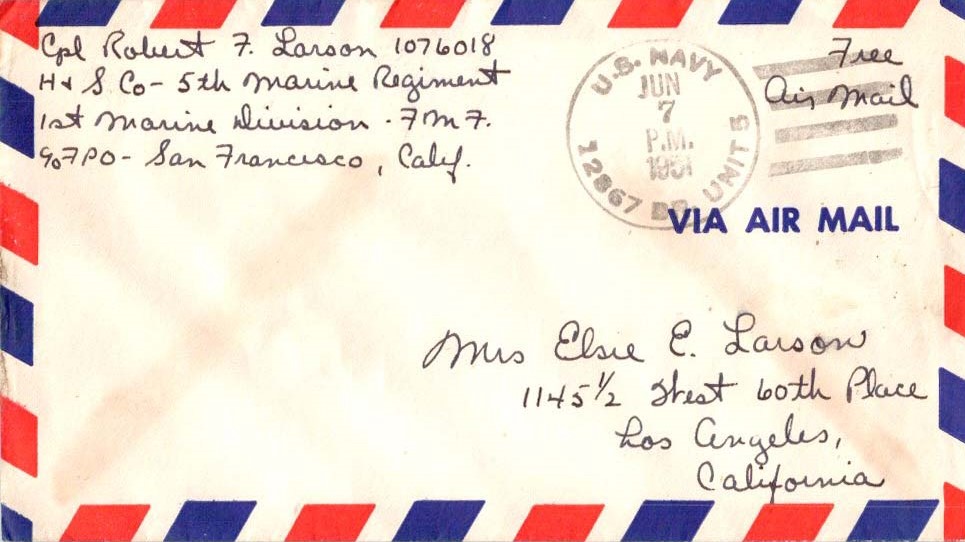 Cpl Robert F. Larson 1076018
H & S Co - 5th Marine Regiment
1st Marine Division - FMF.
℅ FPO - San Francisco, Calif.
U.S. NAVY
JUN
7
P.M.
1951
12867 BR. UNIT 5
Free
Air Mail
VIA AIR MAIL
Mrs Elsie E. Larson
1145 1/2 West 60th Place
Los Angeles,
California